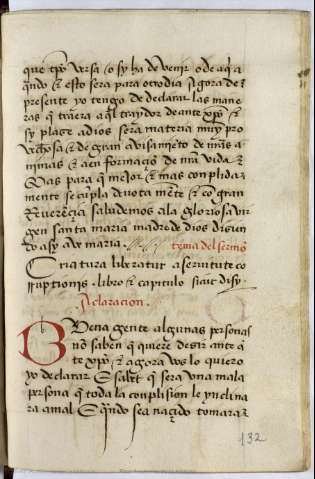 que tpo versa / o sy ha de venir o de aq̃ a
q̃ndo & esto sera para otro dia Agora de
presente yo tengo de declarar las mane
ras q̃ traera aq̃l traydor de ante xp̃o &
sy plase a dios sera materia muy pro
vechosa & de gran avisamiẽto de nr̃as a
nimas & a en formaçiõ de nr̃a vida &
Mas para q̃ mejor & mas conplida
mente se cũpla devota mẽte & cõ gran
Reverẽçia saludemos a la gloriosa vir
gen santa maria madre de dios disien
do asy ave maria. tema del sermõ
Criatura liberatur a servitute co
rruptionis. libro & capitulo sicut dixy.
declaracion.
Buena gente algunas personas
nõ saben q̃ quiere desir ante
xp̃o & agora vos lo quiero
yo declarar Sabet q̃ sera una mala
persona q̃ toda la conplisiõn le ynclina
ra a mal E q̃ndo sea naçido tomara
132